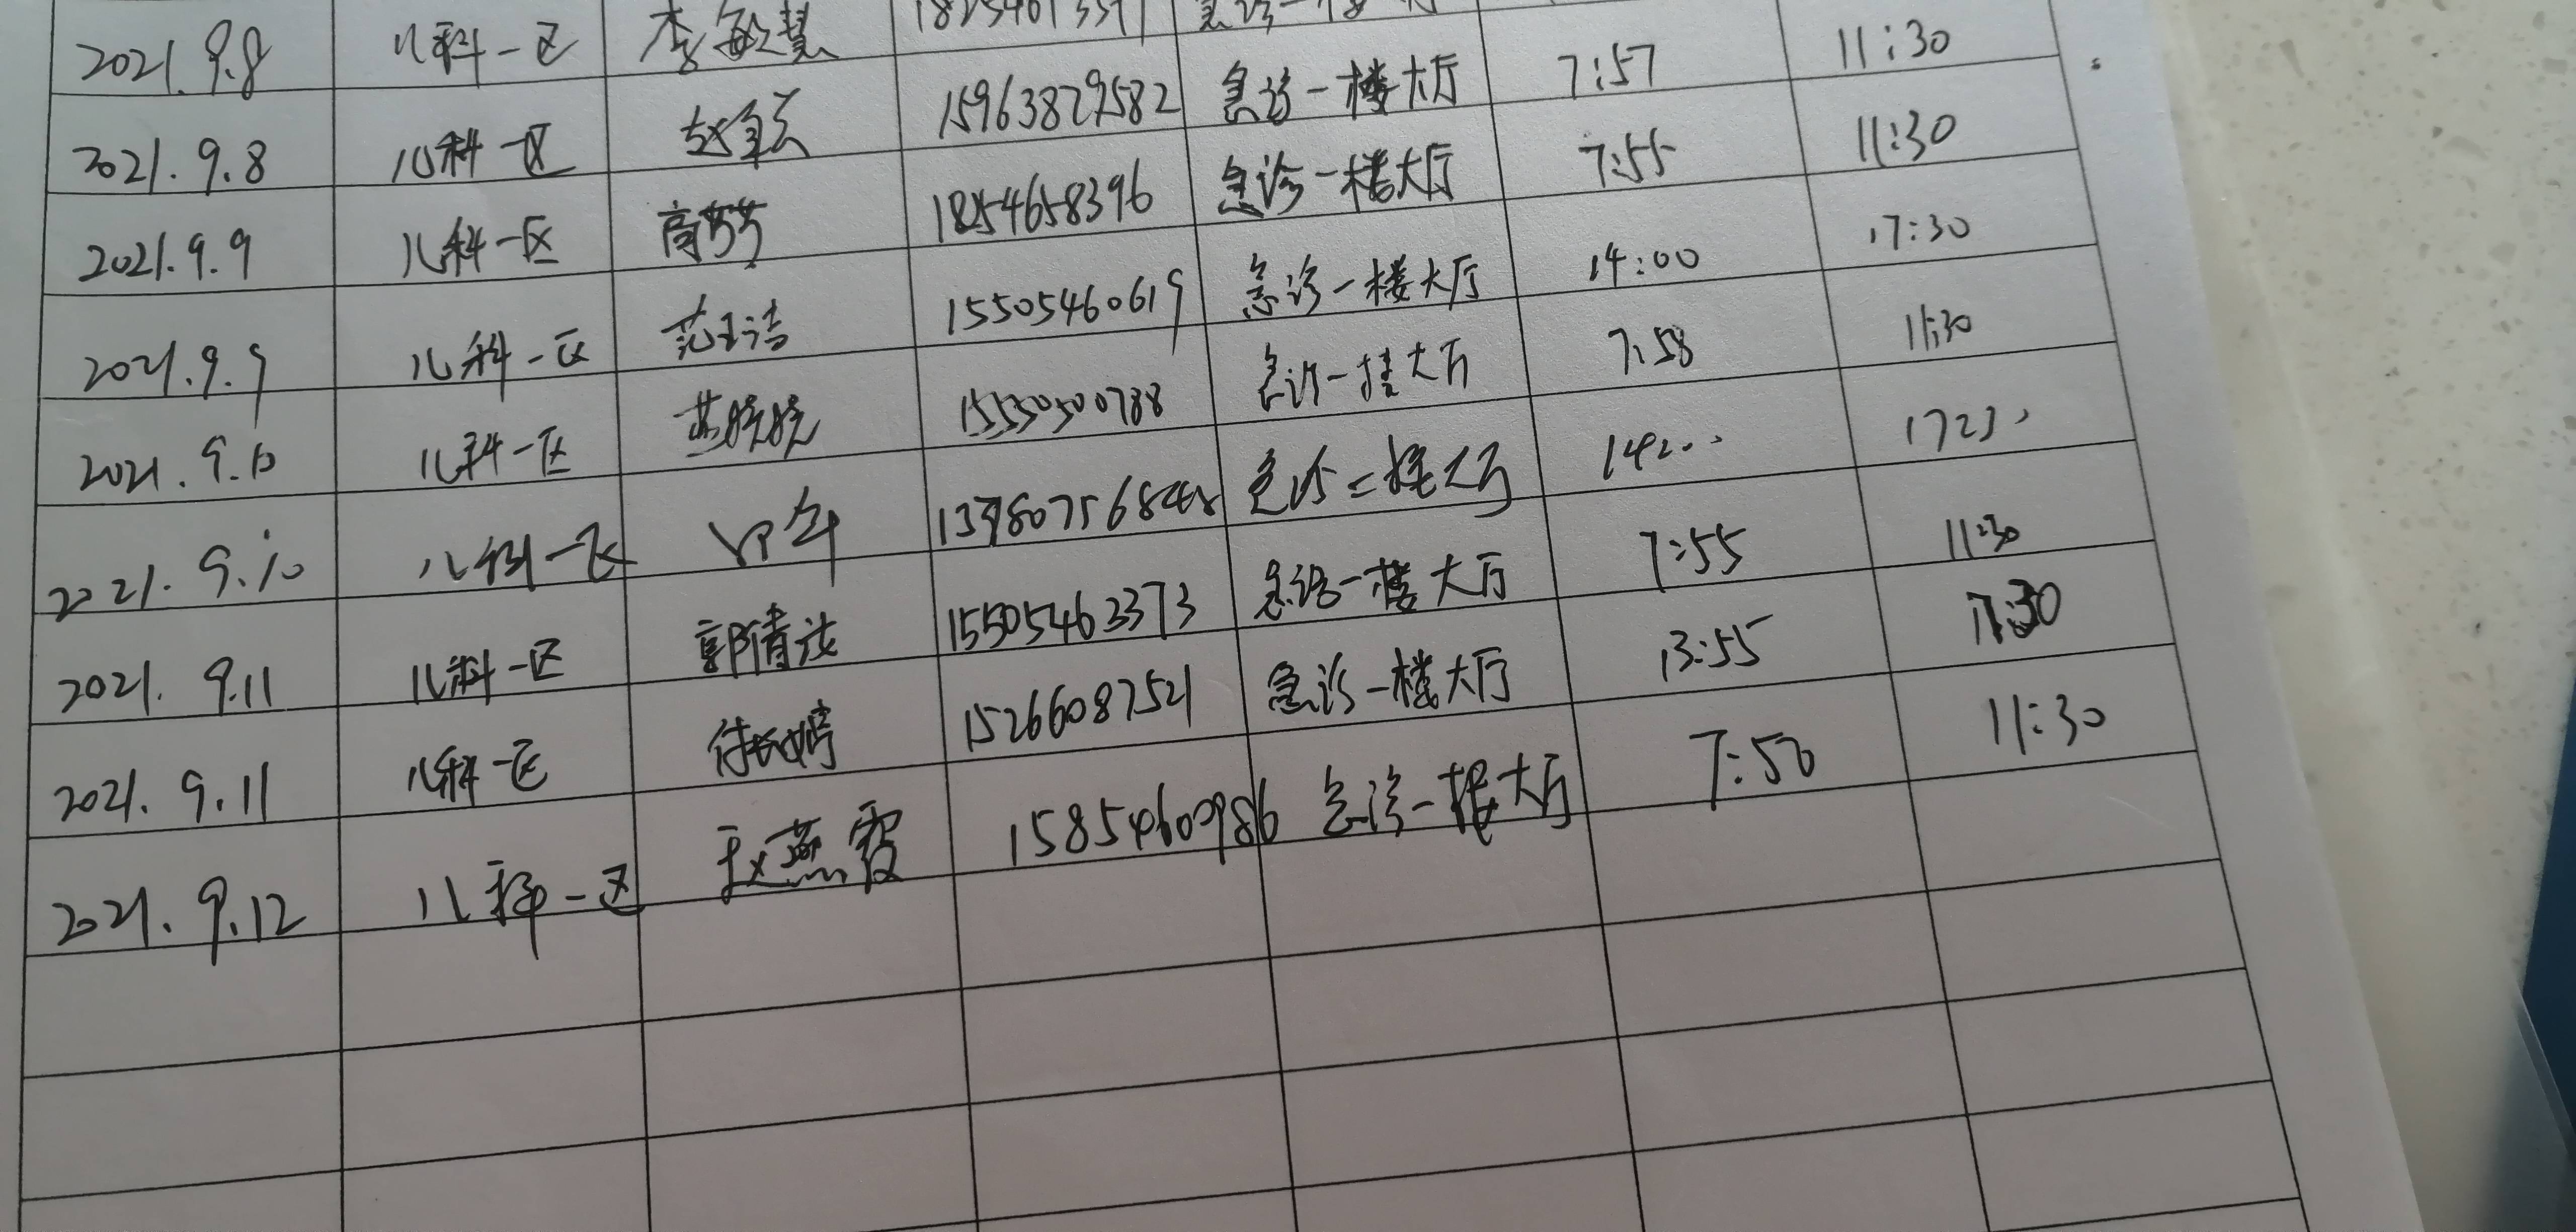 2021.9.8 儿科一区 李敏慧 急诊一楼
2021.9.8 儿科一区 15963829582 急诊一楼大厅 7:57 11:30
2021.9.9 儿科一区 高芳芳 18254658396 急诊一楼大厅 7:55 11:30
2021.9.9 儿科一区 范玉洁 15505460619 急诊一楼大厅 14:00 17:30
2021.9.10 儿科一区 苏媛媛 急诊一楼大厅 7:58 11:30
2021.9.10 儿科一区 急诊一楼大厅
2021.9.11 儿科一区 郭倩 15505462373 急诊一楼大厅 7:55 11:30
2021.9.11 儿科一区 15266087521 急诊一楼大厅 13:55 17:30
2021.9.12 儿科一区 赵燕霞 15854600986 急诊一楼大厅 7:50 11:30